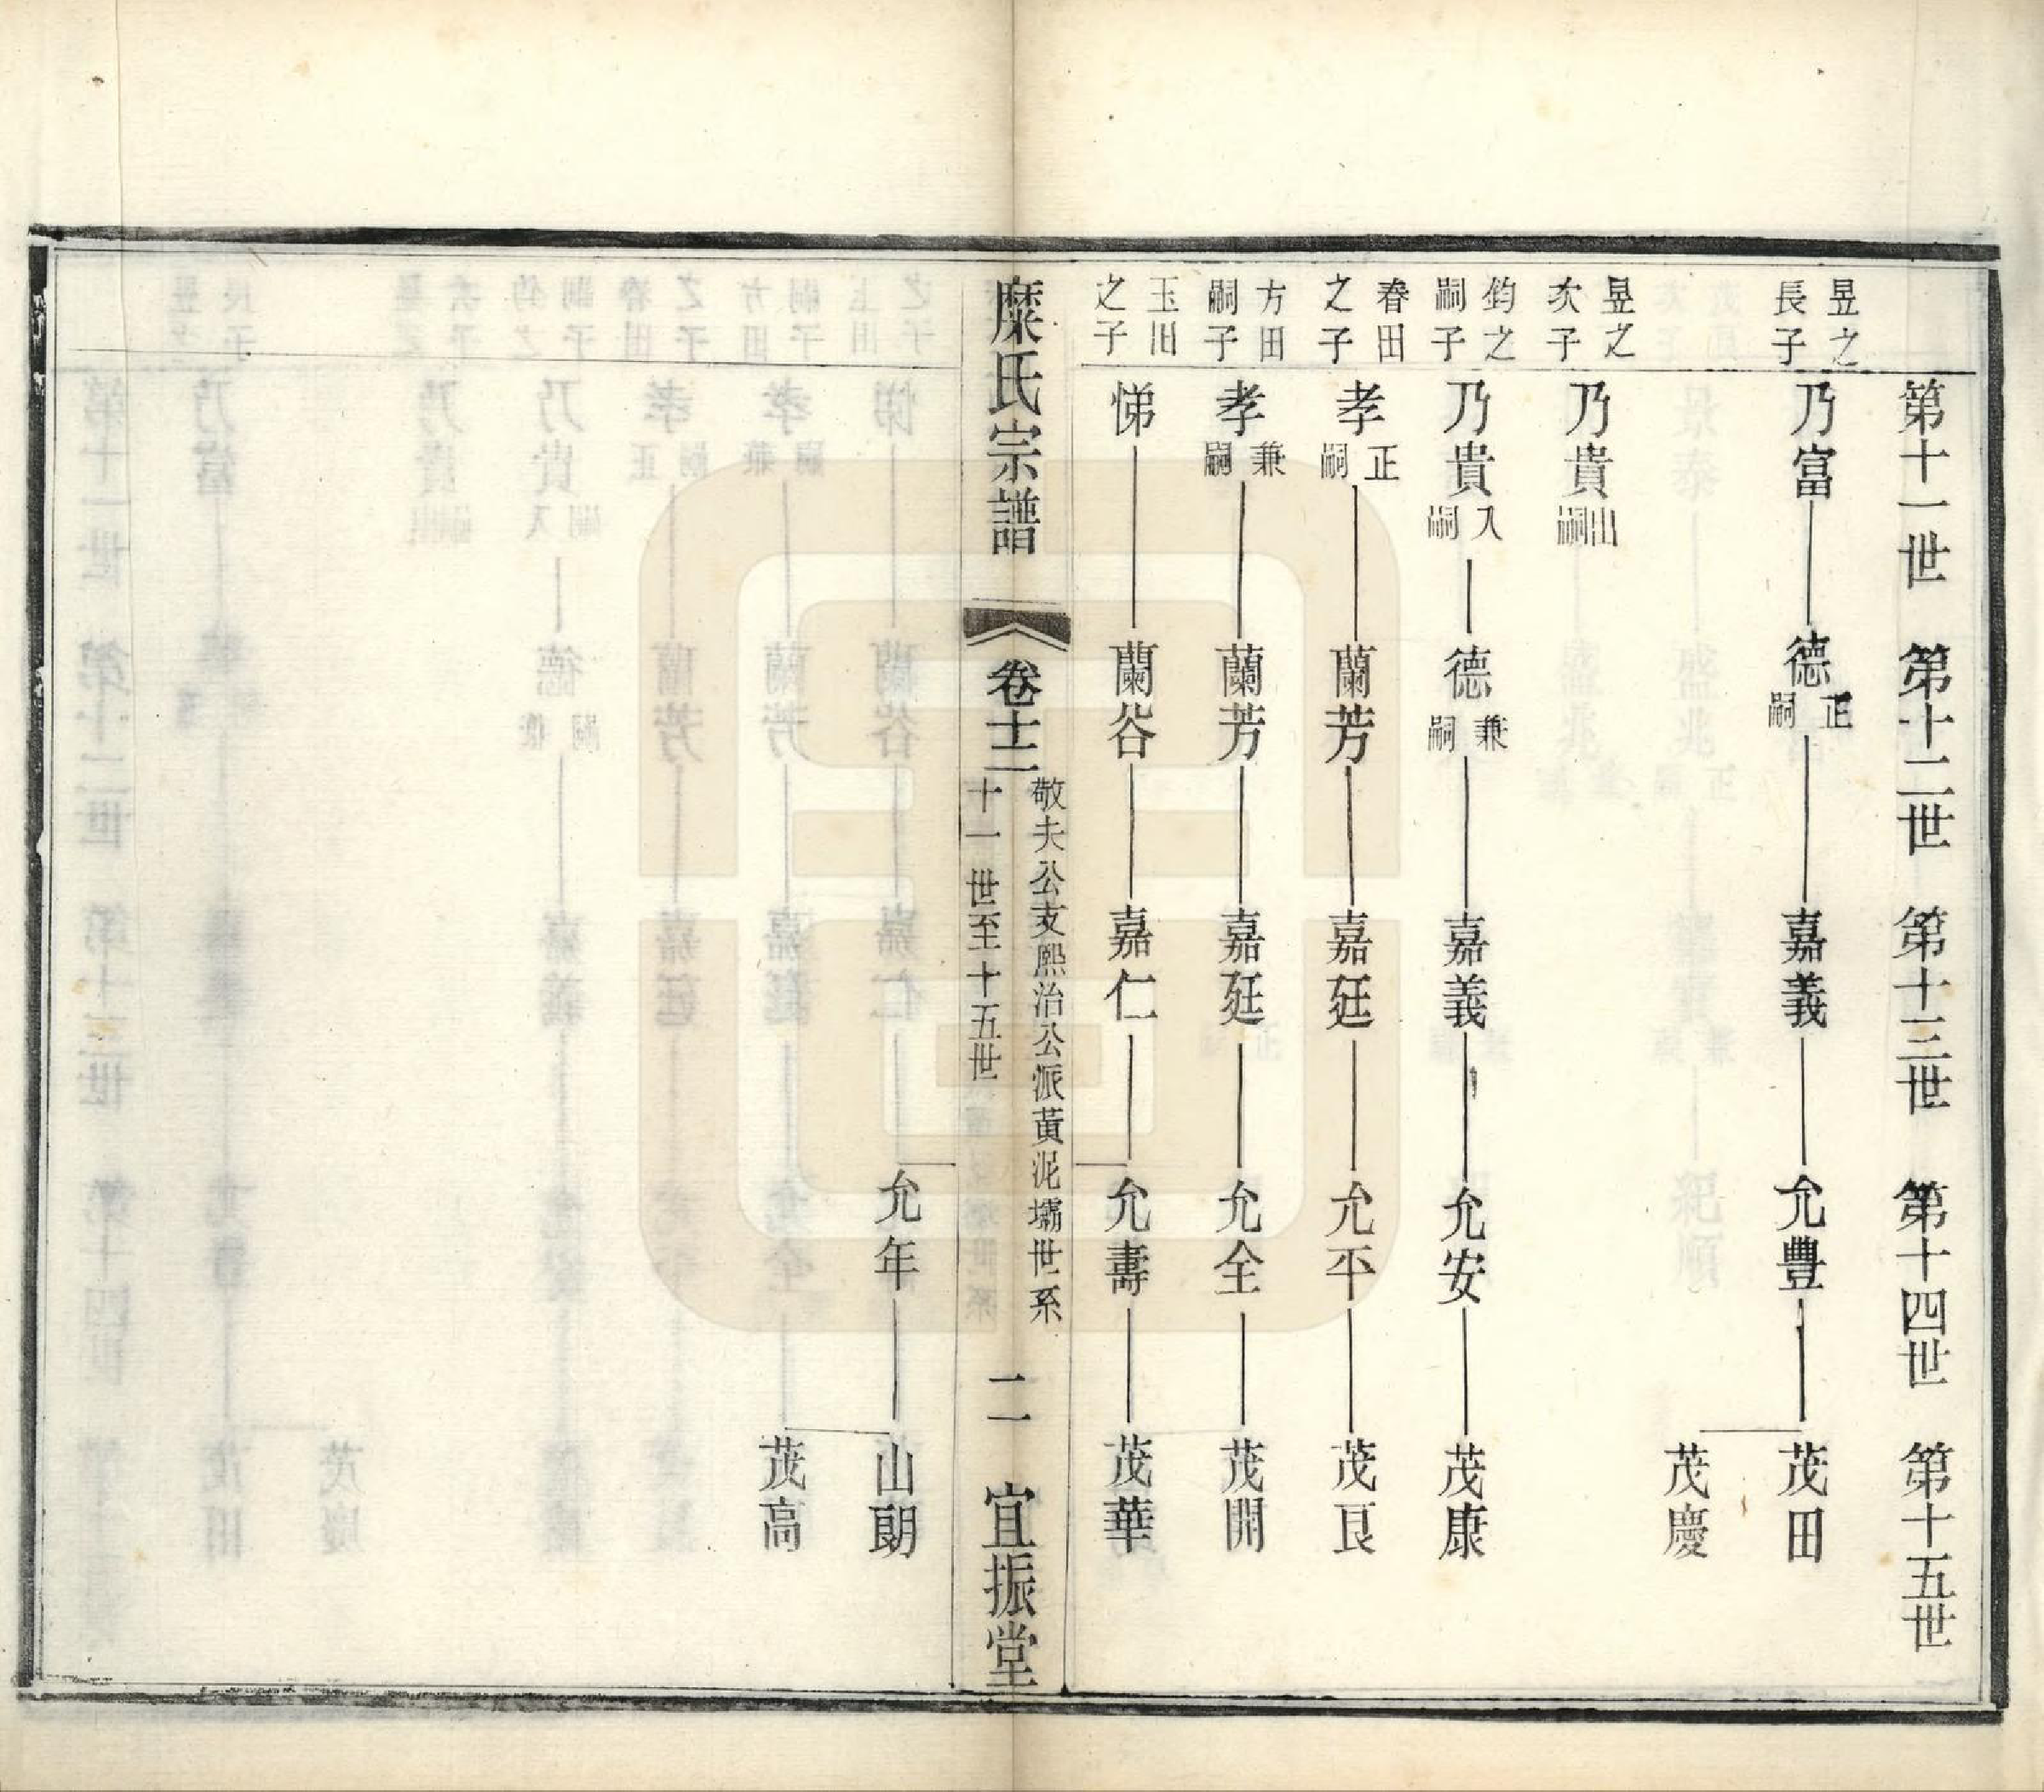 第十一世 第十二世 第十三世 第十四世 第十五世
昱之長子 乃富 德 正嗣 嘉義 允豐 茂田
茂慶
昱之次子 乃貴 出嗣
鈞之嗣子 乃貴 入嗣 德 兼嗣 嘉義 允安 茂康
春田之子 孝 正嗣 蘭芳 嘉廷 允平 茂艮
方田嗣子 孝 兼嗣 蘭芳 嘉廷 允全 茂開
玉田之子 悌 蘭谷 嘉仁 允壽 茂華
糜氏宗譜 卷十二 敬夫公支熙治公派黃泥壩世系 十一世至十五世 二 宜振堂
允年 山朗
茂高